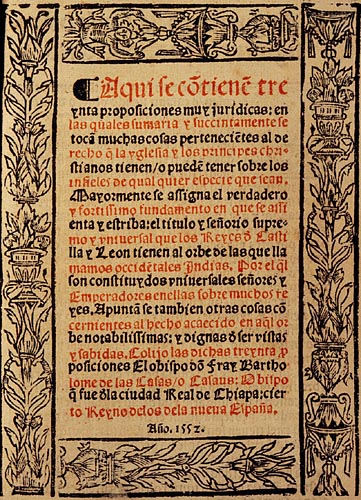 Aqui se cōtienē tre
ynta proposiciones muy juridicas: en
las quales sumaria y succintamente se
tocā muchas cosas perteneciētes al de
recho q̄ la yglesia y los principes chri-
stianos tienen/o puedē tener sobre los
infieles de qual quier especie que sean.
Mayormente se assigna el verdadero
y fortissimo fundamento en que se assi
enta y estriba: el titulo y señorio supre
mo y vniuersal que los Reyes d̄ Casti
lla y Leon tienen al orbe de las que lla
mamos occidētales Indias. Por el q̄l
son constituydos vniuersales señores y
Emperadores en ellas sobre muchos re
yes. Apuntā se tambien otras cosas cō
cernientes al hecho acaecido en aq̄l or
be notabilissimas: y dignas d̄ ser vistas
y sabidas. Colijo las dichas treynta p̄
posiciones El obispo dō Fray Bartho
lome de las Casas/o Casaus: Obispo
q̄ fue d̄la ciudad Real de Chiapa: cier
to Reyno delos dela nueua España.
Año. 1552.